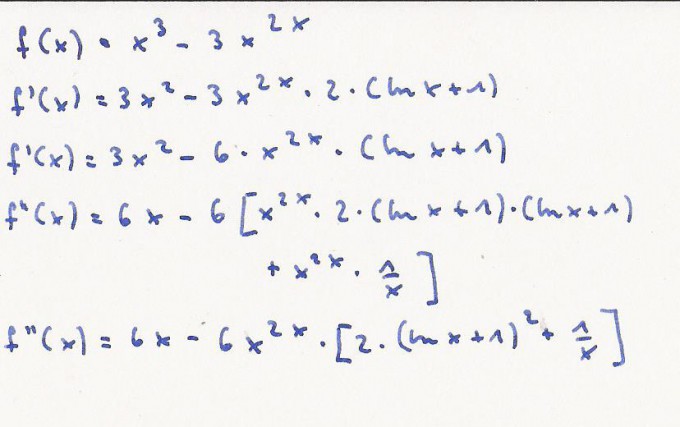 f(x) = x³ - 3x²ˣ
f'(x) = 3x² - 3x²ˣ · 2 · (ln x + 1)
f'(x) = 3x² - 6 · x²ˣ · (ln x + 1)
f''(x) = 6x - 6 [x²ˣ · 2 · (ln x + 1) · (ln x + 1)
+ x²ˣ · 1/x ]
f''(x) = 6x - 6x²ˣ · [2 · (ln x + 1)² + 1/x ]